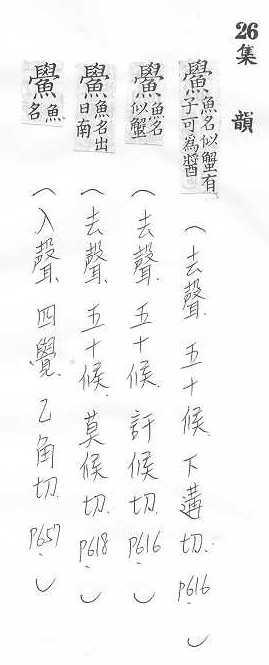 26 集韻
鱟魚名似蟹有子可為醬（去聲.五十候.下遘切.P616）
鱟魚名似蟹（去聲.五十候.許候切.P616）
鱟魚名出日南（去聲.五十候.莫候切.P618）
鱟魚名（入聲.四覺.乙角切.P657）